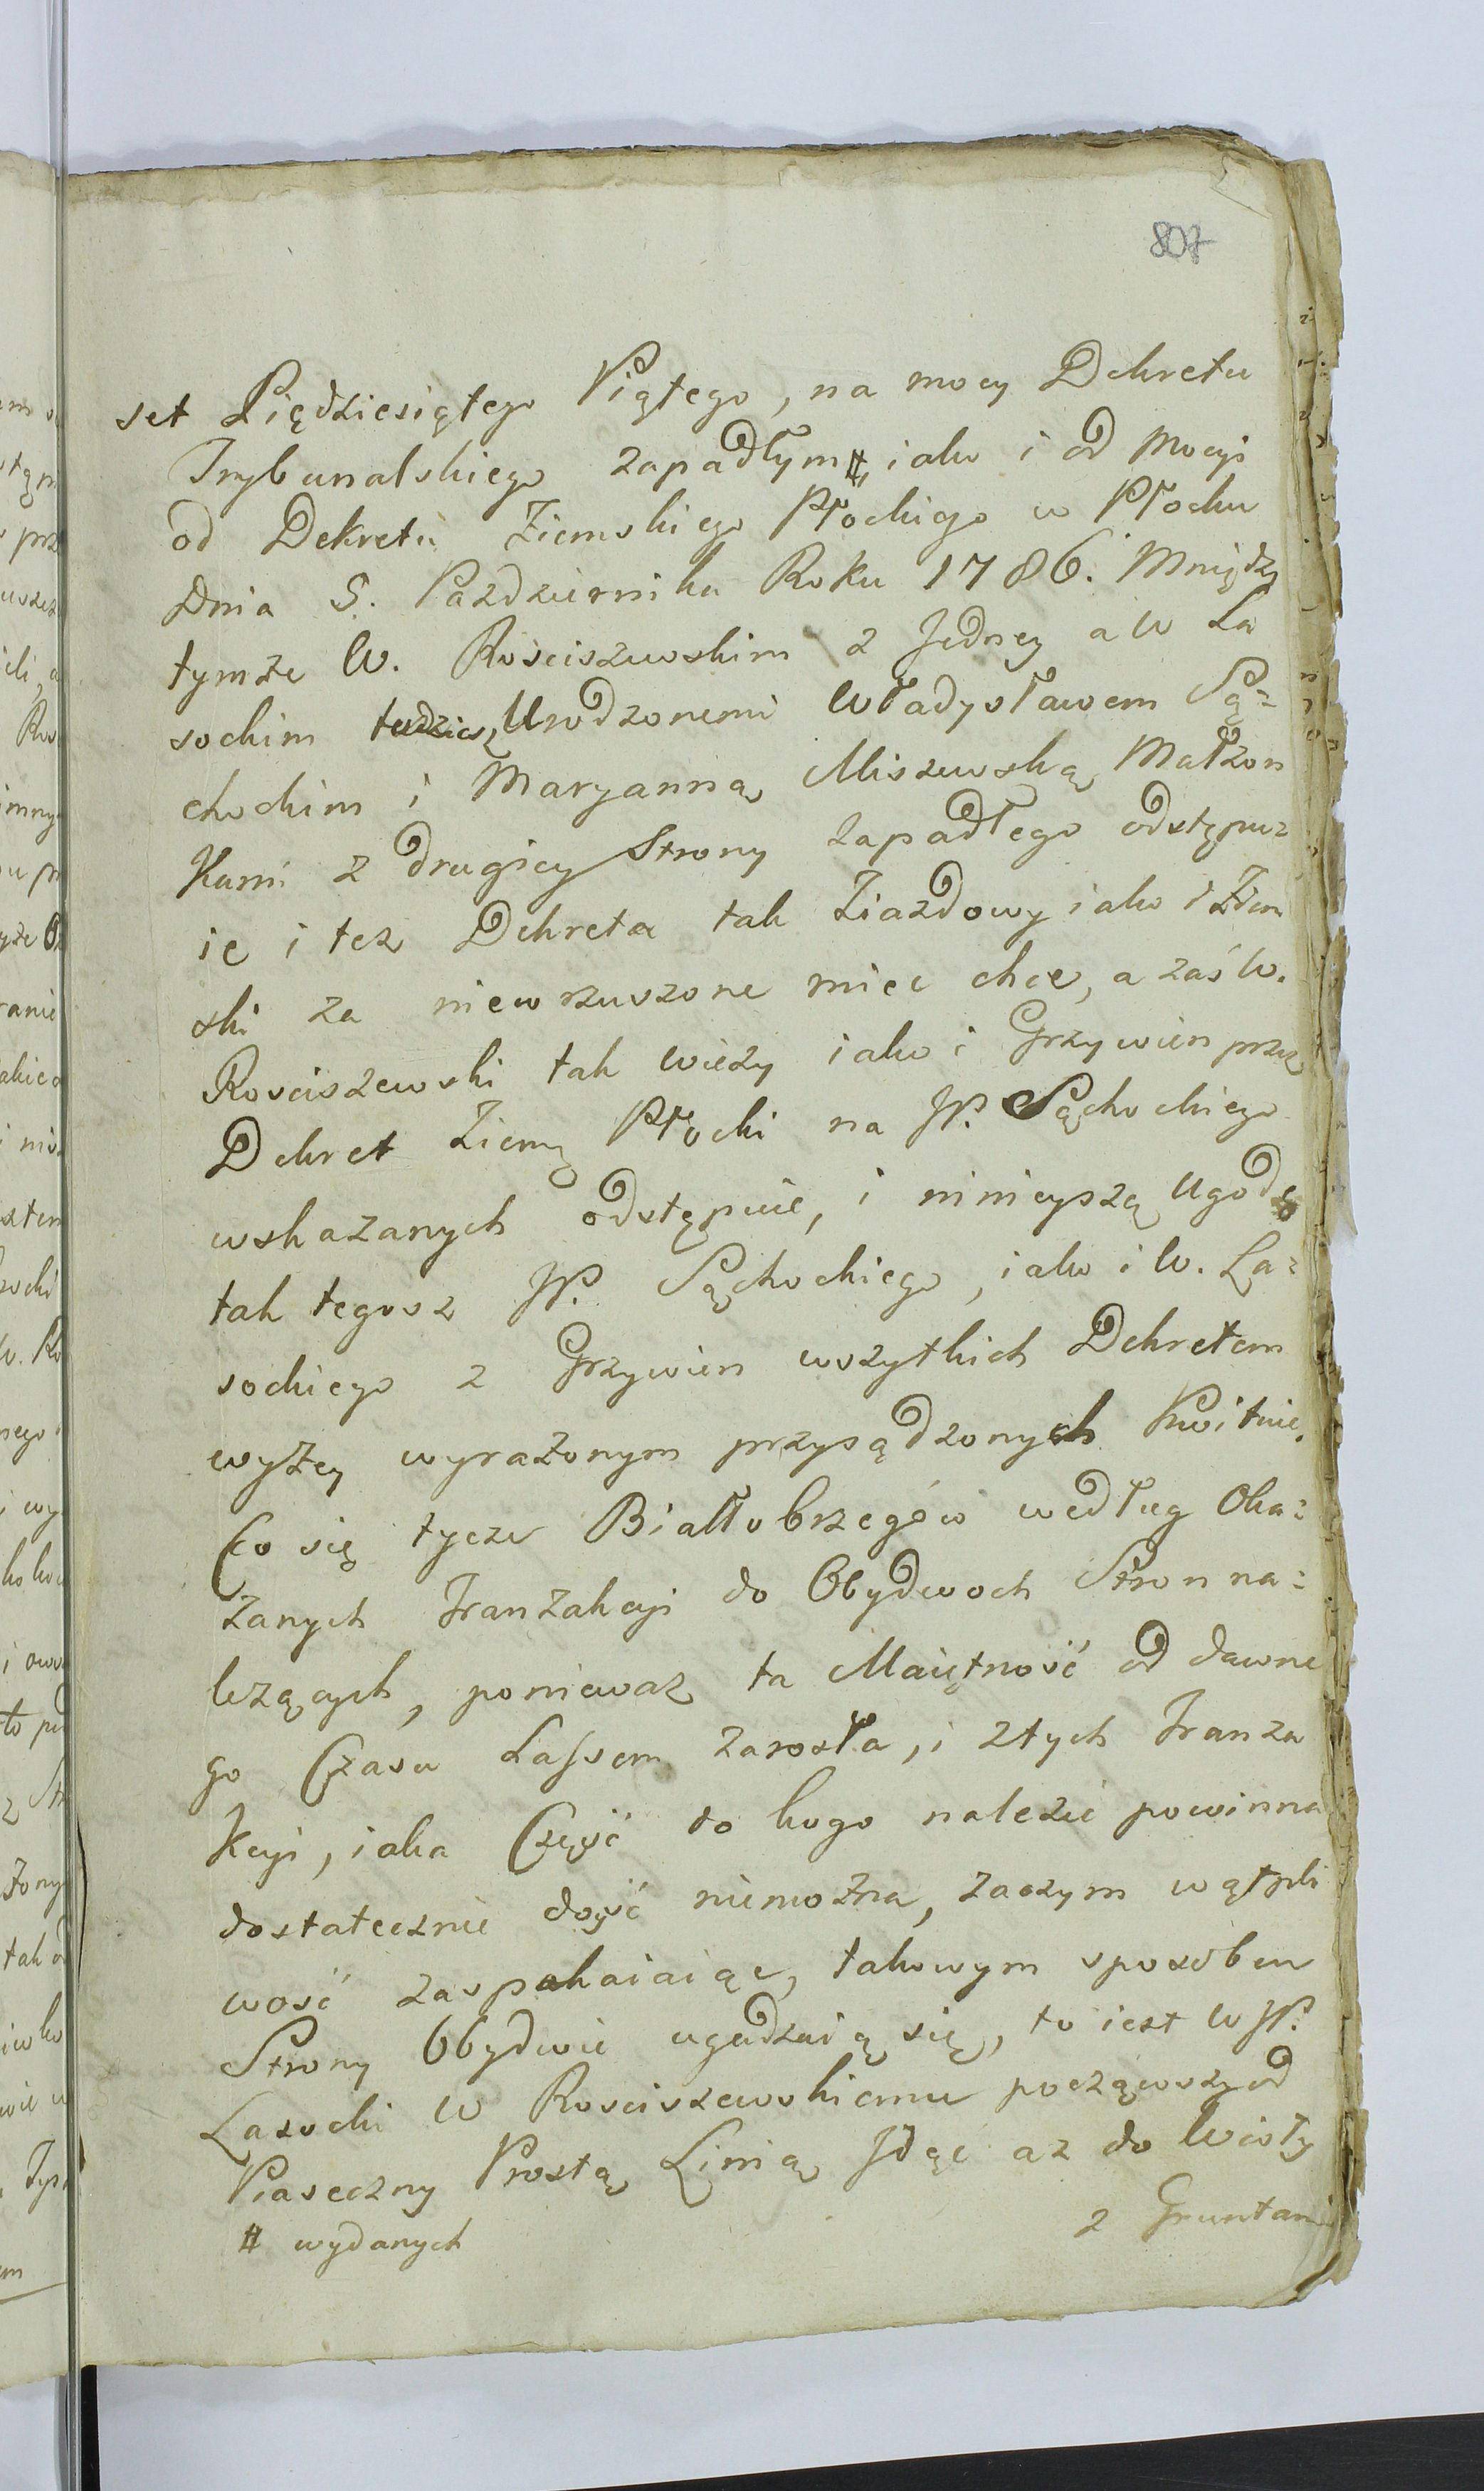 807
set Pięдziesiątego Piątego, na mocy Dekretu
Trybunalskiego zapadłym #, iako i od Mocyi
od Dekretu Ziemskiego Płockiego w Płocku
Dnia 5. Pazdziernika Roku 1786. Między
tymże W. Rościszewskim z Jedney a W La
sockim tudziesz Urodzonemi Władysławem Są=
chockim i Maryanną Miszewską Małżon
Kami z drugiey Strony zapadłego odstępu=
ie i tez Dekreta tak Ziazdowy iako i Ziem
ski za niewzruszone miec chce, a zaś W.
Rosciszewski tak wieży iako i Grzywien przez
Dekret Ziemsḳi Płocki na JP. Sąchockiego
wskazanych odstępuie, i ninieyszą Ugodą
tak tegosz JP. Sąchockiego, iako i W. La=
sockiego z Grzywien wszytkich Dekretem
wyżey wyrażonym przysądzonych Kwituie.
Co się tycze Białłobrzegów według Oka=
zanych Tranzakcyi do Obydwoch Stron na=
lezących, poniewaz ta Maiętność od dawne
go Czasu Lassem zarosła, i z tych Tranza
Kcyi, iaka Część do kogo nalezić powinna
dostatecznie dość niemożna, zaczym wątpli
wość zaspakaiaiąc, takowym sposobem
Strony Obydwie ugadzaią się, to iest W JP.
Lasocki W Rosciszewskiemu począwszy od
Piaseczny Prostą Linią Jdąc az do Wisły
# wydanych
z Gruntami